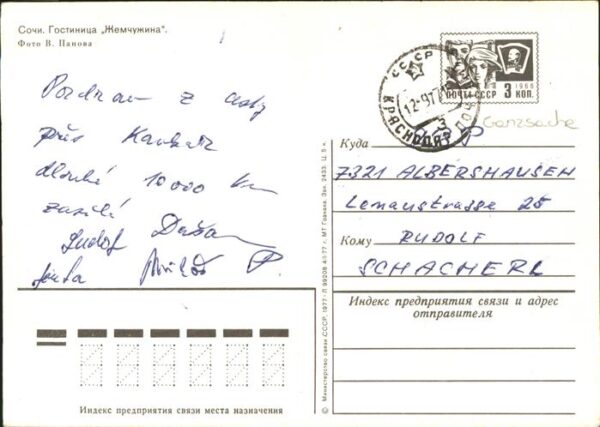 Сочи. Гостиница „Жемчужина".
Фото В. Панова
Pozdrav z cesty
přes Kavkaz
dlouhé 10 000 km
zasílá
Rudolf Dušan
Jenta Miloš P.
СССР
КРАСНОДАР ПОЧ
12-97
3
1966
ПОЧТА СССР 3 КОП.
Ganzsache
Куда
7321 ALBERSHAUSEN
Lenaustrasse 25
Кому RUDOLF
SCHACHERL
Индекс предприятия связи и адрес
отправителя
Индекс предприятия связи места назначения
© Министерство связи СССР. 1977
МТ Гознака. Зак. 2433. Ц. 5 к.